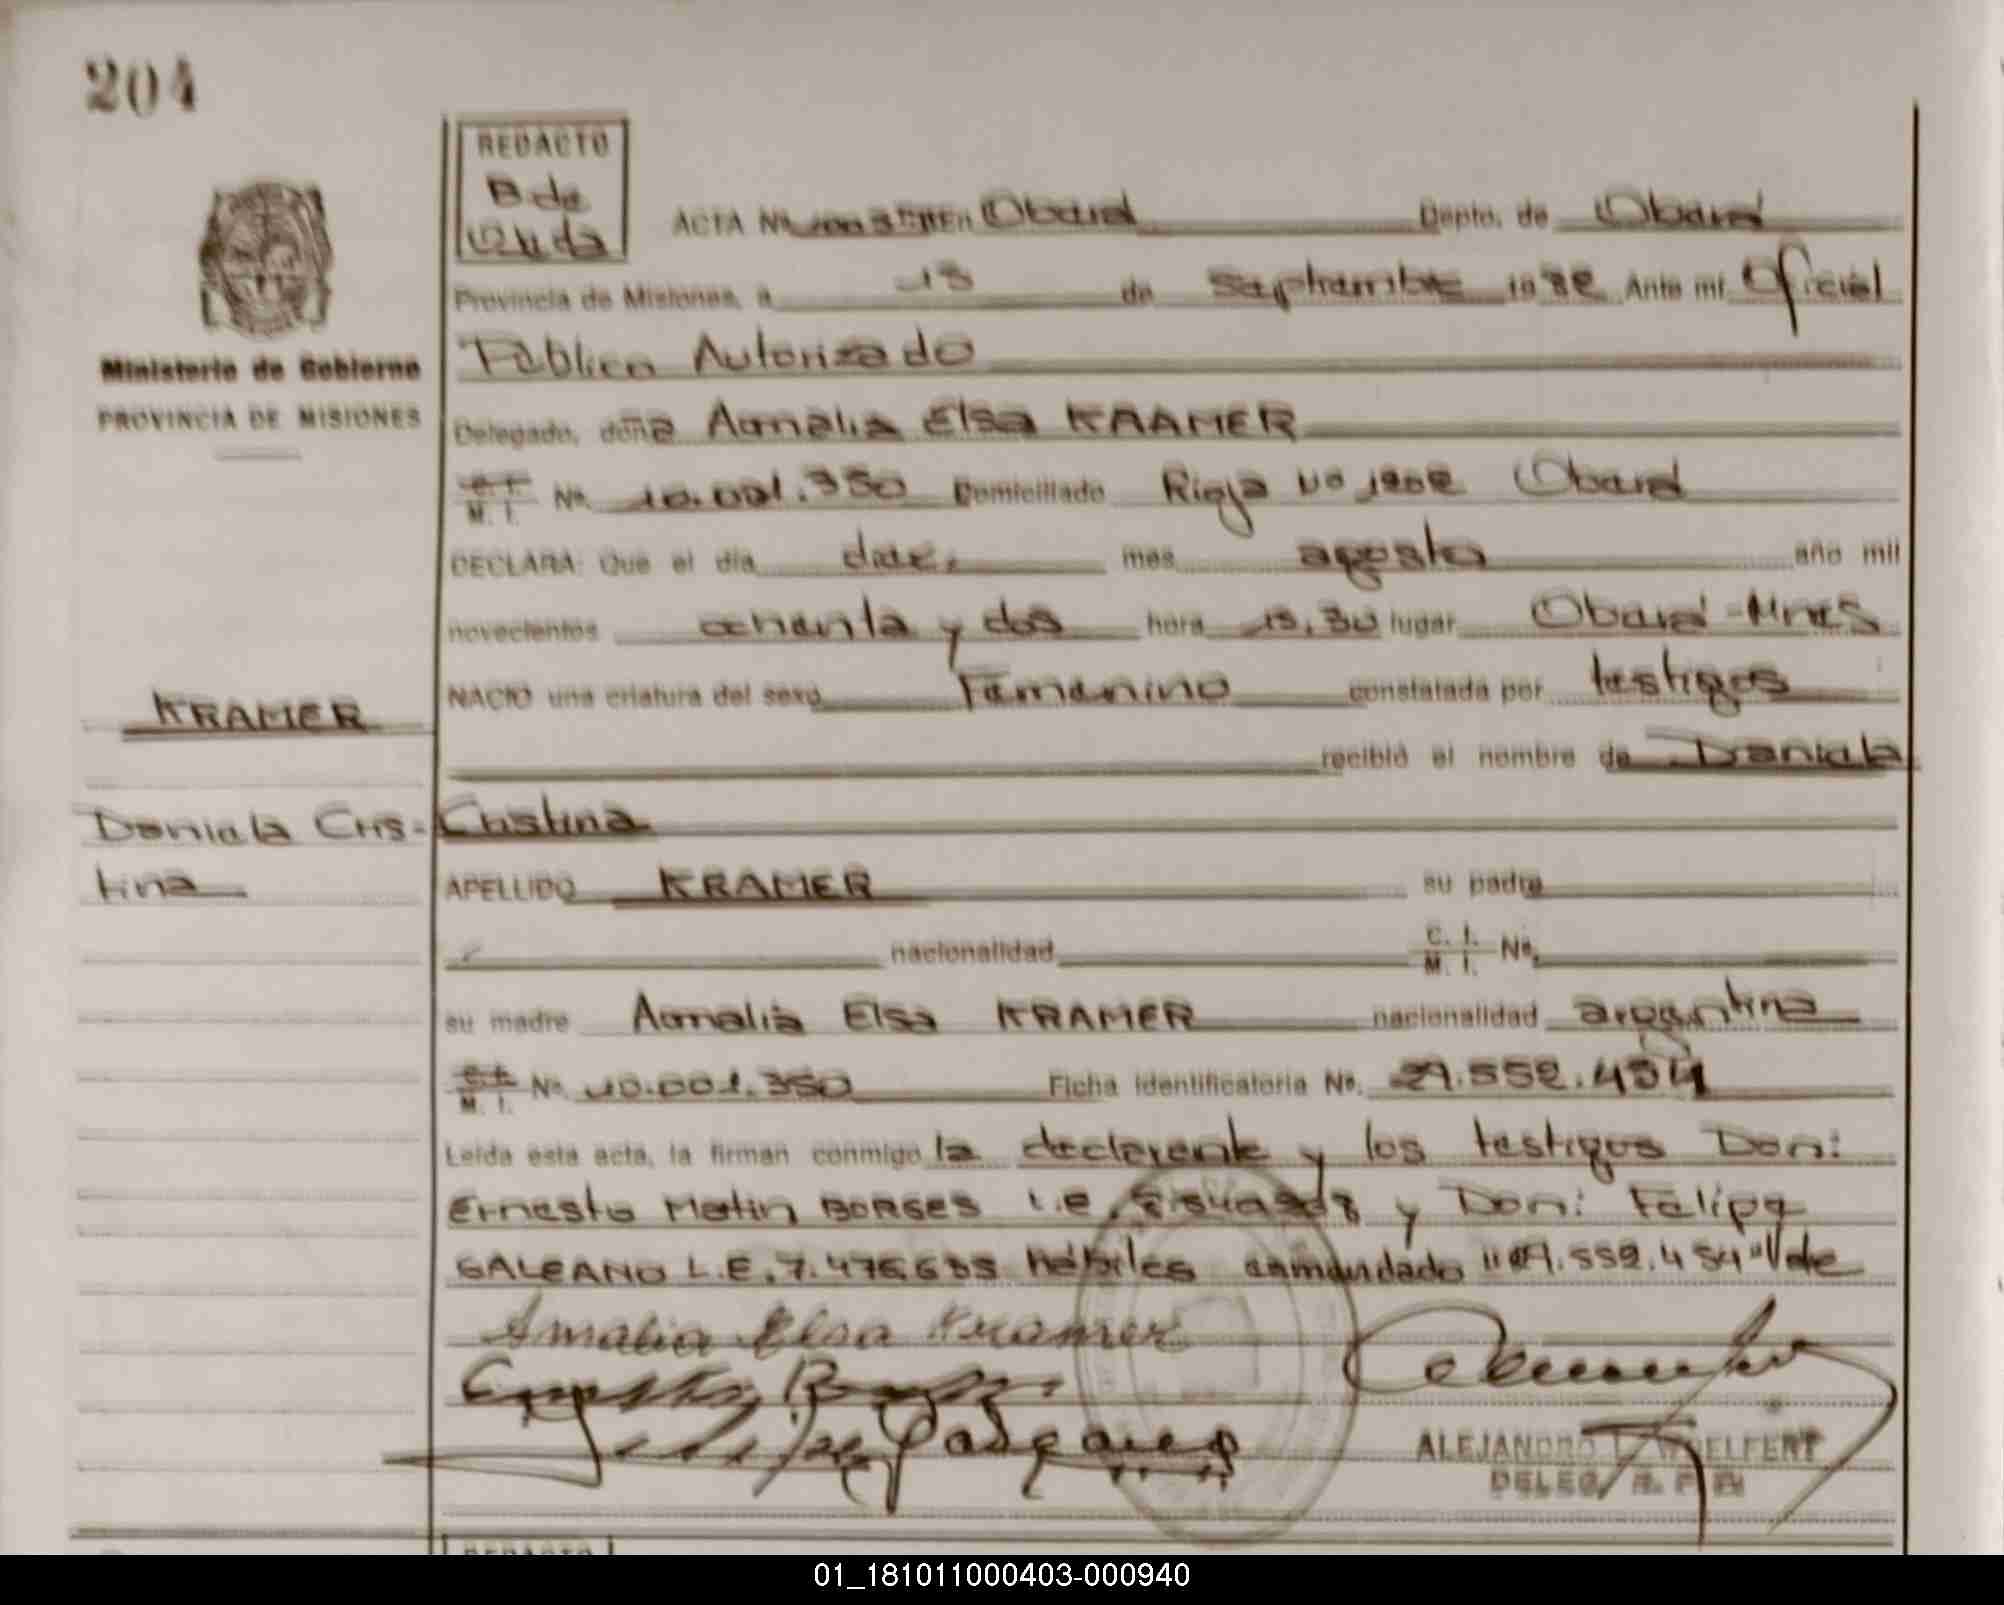 204
REDACTO
B. de
ACTA Nº EN Oberá Depto. de Oberá
Provincia de Misiones, a 13 de Septiembre 1982 Ante mí Oficial
Público Autorizado
Ministerio de Gobierno
PROVINCIA DE MISIONES
Delegado, doña Amalia Elsa KRAMER
M. I. Nº 10.001.350 Domiciliado Rioja Nº Oberá
DECLARA: Que el día diez, mes agosto año mil
novecientos ochenta y dos hora 13,30 lugar Oberá-Mnes
NACIO una criatura del sexo Femenino constatada por testigos
KRAMER
recibió el nombre de Daniela
Daniela Cris-
Cristina
tina
APELLIDO KRAMER su padre
nacionalidad C. I. M. I. Nº
su madre Amalia Elsa KRAMER nacionalidad argentina
M. I. Nº 10.001.350 Ficha identificatoria Nº. 29.552.454
Leída esta acta, la firman conmigo la declarante y los testigos Don:
Ernesto Martin BORGES L.E. y Don: Felipe
GALEANO L.E. 7.476.635 hábiles enmendado "29.552.454" Vale
Amalia Elsa Kramer
ALEJANDRO WOELFERT
DELEG. R. P.
REDACTO
01_181011000403-000940